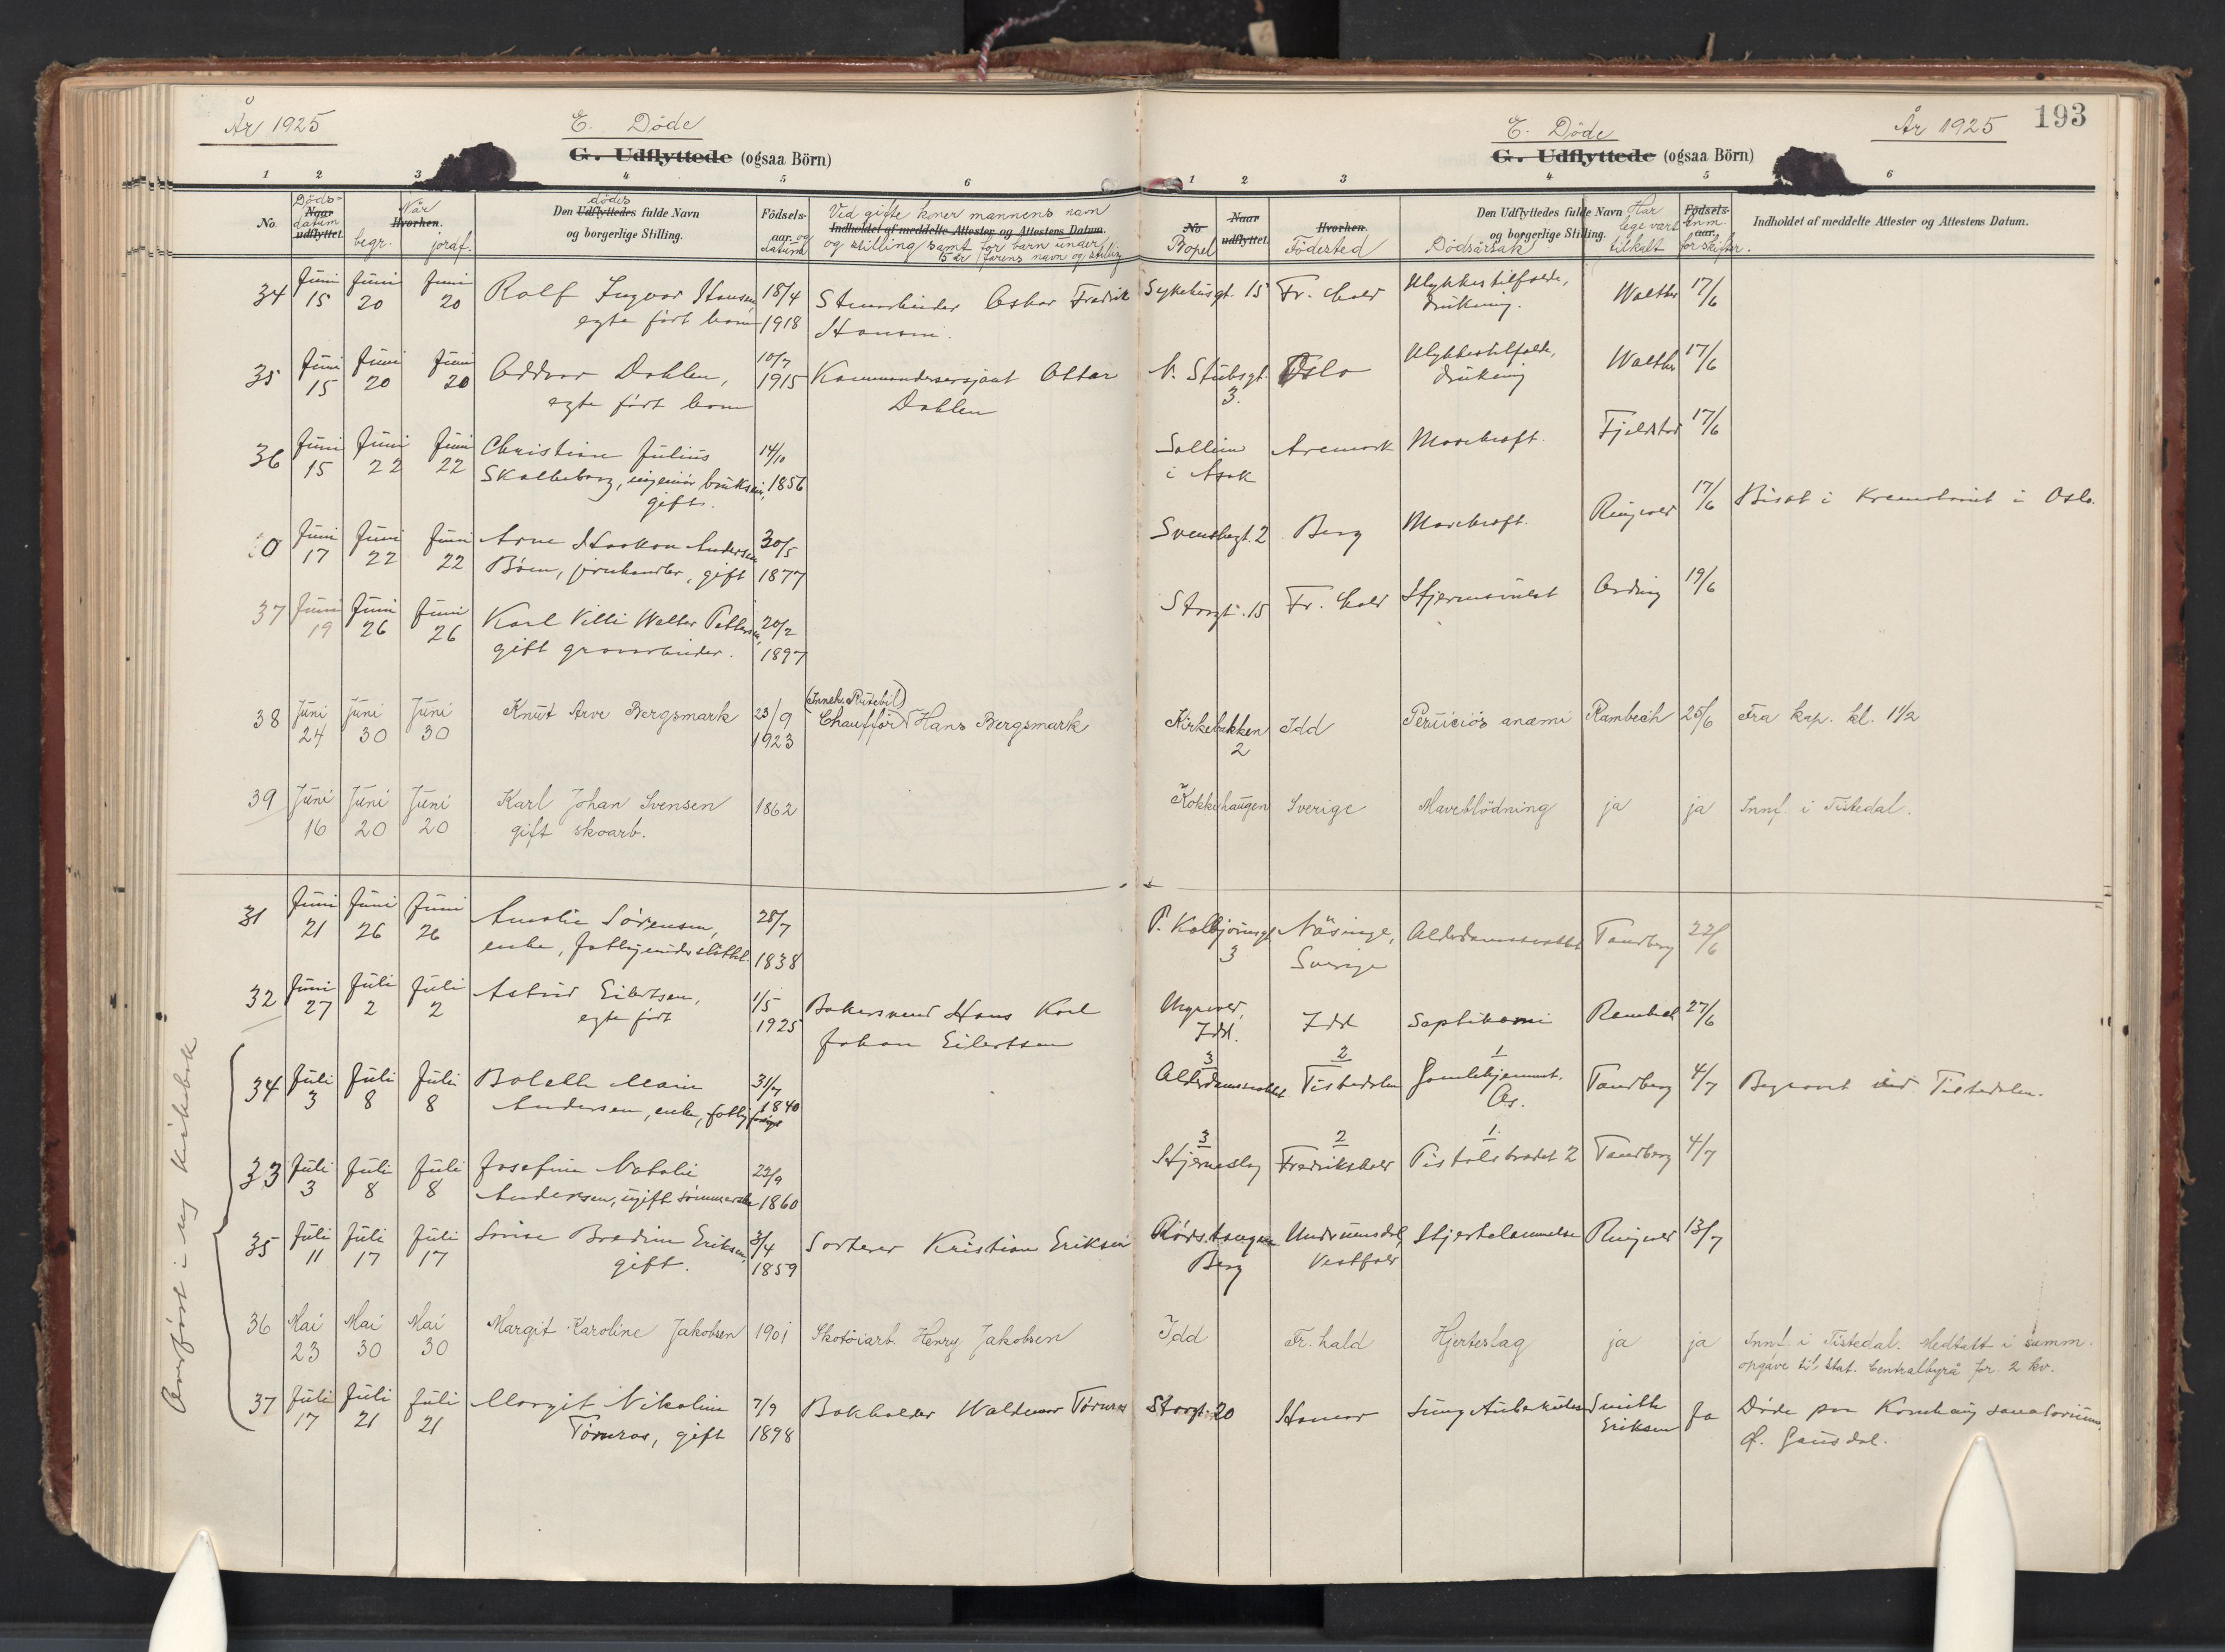 År 1925
E. Döde
G. Udflyttede (ogsaa Börn)
1 2 3 4 5 6
No. Döds-datum Naar udflyttet. Når begr. jordf. Hvorhen. Den dödes Udflyttedes fulde Navn og borgerlige Stilling. Födsels-aar. og datum
Ved gifte koner mannens navn
Indholdet af meddelte Attester og Attestens Datum.
og stilling samt for barn under
15 år farens navn og stilling
34 Juni 15 Juni 20 Juni 20 Rolf Ingvar Hansen, 18/4 Stenarbeider Oskar Fredrik
egte født barn 1918 Hansen.
35 Juni 15 Juni 20 Juni 20 Oddvar Dahlen, 10/7 1915 Kommandersersjant Ottar
egte født barn Dahlen
36 Juni 15 Juni 22 Juni 22 Christian Julius 14/10
Skolleborg, ingeniör, 1856
gift.
0 Juni 17 Juni 22 Juni 22 Arne Haakon Andersen 30/5
Böen, jernhandler, gift 1877
37 Juni 19 Juni 26 Juni 26 Karl Villi Walter Pettersen, 20/2
gift grovarbeider. 1897
38 Juni 24 Juni 30 Juni 30 Knut Arve Bergsmark 23/9 1923 Chafför Hans Bergsmark
39 Juni 16 Juni 20 Juni 20 Karl Johan Svensen 1862
gift skoarb.
31 Juni 21 Juni 26 Juni 26 Amalie Sörensen, 28/7
enke, 1838
32 Juni 27 Juli 2 Juli 2 Astrid Eilertsen, 1/5 Bakersvend Hans Karl
egte født 1925 Johan Eilertsen
34 Juli 3 Juli 8 Juli 8 Bolette Marie 31/7
Andersen, enke, 1840
33 Juli 3 Juli 8 Juli 8 Josefine Natalie 22/9
Andersen, ugift sømmerske 1860
35 Juli 11 Juli 17 Juli 17 Lovise Bredine Eriksen, 3/4 Sorterer Kristian Eriksen
gift. 1859
36 Mai 23 Mai 30 Mai 30 Margit Karoline Jakobsen 1901 Skotöiarb. Henry Jakobsen
37 Juli 17 Juli 21 Juli 21 Margit Nikoline 7/9 Bokholder Waldemar Törnros
Törnros, gift 1898
Overfört i ny kirkebok
E. Döde
År 1925
193
G. Udflyttede (ogsaa Börn)
1 2 3 4 5 6
No Bopel Naar udflyttet. Hvorhen. Födested Den Udflyttedes fulde Navn og borgerlige Stilling. Dödsårsak Har lege vært tilkalt Födsels-aar. Anm. for skifter. Indholdet af meddelte Attester og Attestens Datum.
Sykehusgt. 15 Fr.hald Ulykkestilfælde, drukning. Walther 17/6
V. Stubsgt. 3. Oslo Ulykkestilfælde, drukning Walther 17/6
Sollien i Asak Aremark Mavekræft. Fjeldstad 17/6
Svenskegt. 2 Berg Mavekræft. Ringvold 17/6 Bisat i Krematoriet i Oslo.
Storgt. 15 Fr.hald Hjernesvulst Ording 19/6
Kirkebakken 2 Idd Perniciös anæmi Rambech 25/6 Fra kap. kl. 1 1/2
Kokkehaugen Sverige Maveblödning ja ja Innf. i Tistedal.
P. Kolbjörnsgt 3 Näsinge, Sverige Alderdomssvakhet Tandberg 22/6
Idd. Idd Septikæmi Rambech 27/6
3 2 1
Alderdomssvakhet. Tistedalen Gamlehjemmet, Os. Tandberg 4/7 Begravet ved Tistedalen.
3 2 1.
Hjerneslag Fredrikshald Pistolstrædet 2 Tandberg 4/7
Berg Undrumsdal, Vestfold Hjertelammelse Ringvold 13/7
Idd Fr.hald Hjerteslag ja ja Innf. i Tistedal. Medtatt i summ.
opgave til Stat. Centralbyrå for 2 kv.
Storgt. 20 Hamar Lungetuberkulose Smith Eriksen Ja Döde paa Kornhaug sanatorium,
Ø. Gausdal.